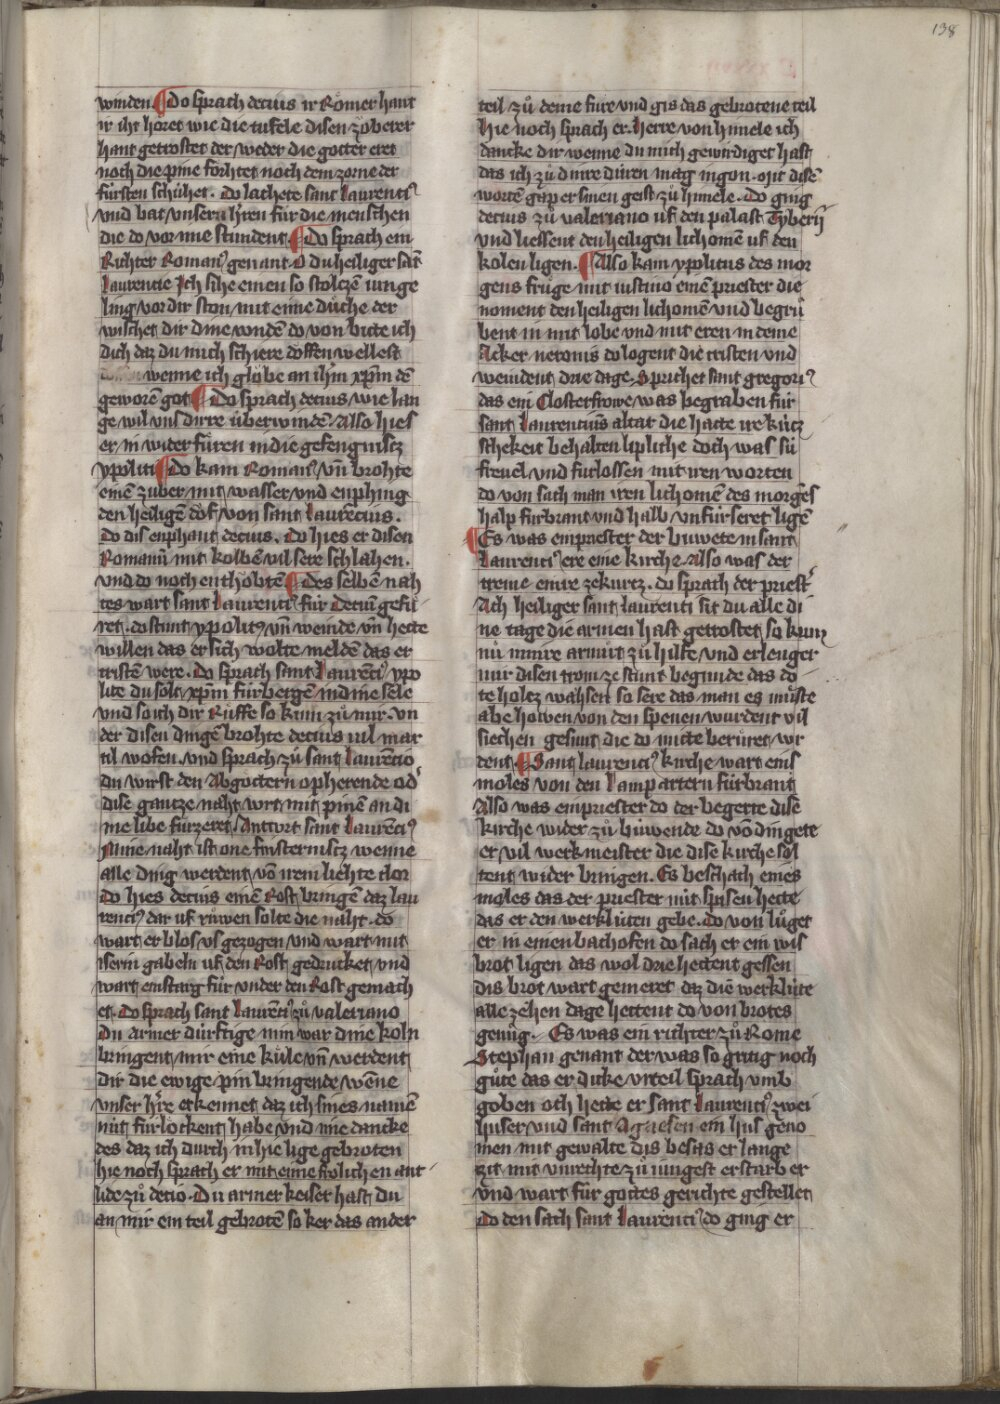 138
winden. Do sprach decius ir Roͤmer hant
ir iht hoͤret wie die tufele disen zoͮberer
hant getroͤstet der weder die goͤtter eret
noch die pine foͤrhtet noch dem zorne der
fúrsten schúhet. do lachete sant Laurenciꝰ
vnd bat vnsern hͤren fúr die menschen
die do vor ime stundent Do sprach ein
Richter Romanꝰ genant O du heiliger sāt
Laurencie Jch sihe einen so stoltzen iunge
ling vor dir ston mit eime duͦche der
wischet dir dine wndē do von bitte ich
dich daz du mich schiere doͤffen wellest
wenne ich gloͤbe an ihm xp̄m dē
geworē got Do sprach decius wie lan
ge wil vns dirre úberwindē Also hies
er in wider fúren in die gefengnisz
ypoliti Do kam Romanꝰ vn̄ brohte
einē zuber mit wasser vnd enphing
den heiligē dof von sant Laurēcius.
Do dis enphant decius. do hies er disen
Romanū mit kolbē vil sere schlahen.
vnd do noch enthoͤbtē Des selbē nah
tes wart sant Laurenciꝰ fúr Deciū gefuͤ
ret. do stunt ypolitꝰ vn̄ weinde vn̄ hette
willen das er sich wolte meldē das er
cristē were. do sprach sant Laurēciꝰ ypo
lite du solt xp̄m fúrbergē in dine sele
vnd so ich dir Ruͤffe so kum zuͦ mir. vn
der disen dingē brohte decius vil mar
til wofen. vnd sprach zuͦ sant Laurēcio
du wirst den Abgoͤttern opherende odˀ
dise gantze naht wrt mit pinē an di
me libe fúrzeret Antwrt sant Laurēciꝰ
Mine naht ist one finsternisz wenne
alle ding werdent vō irem lichte clor
do hies decius einē Rost bringē daz lau
renciꝰ dar vf ruͦwen solte die naht. do
wart er blos vs gezogen vnd wart mit
iserin gabeln vf den Rost gedrucket vnd
wart ein starg fúr vnder den Rost gemach
et. Do sprach sant Laurēciꝰ zuͦ valeriano
Du armer dúrftige nim war dine koln
bringent mir eine kuͤle vn̄ werdent
dir die ewige pin bringende wēne
vnser hͤre erkennet daz ich sines namē
nút fúrloͤckent habe vnd ime dancke
des daz ich durch in hie lige gebroten
hie noch sprach er mit eime froͤlichen ant
lide zuͦ decio. Du armer keiser hast du
an mir ein teil gebrotē so ker das ander
teil zuͦ deme fúre vnd gis das gebrotene teil
hie noch sprach er. Herre von himele ich
dancke dir wenne du mich gewirdiget hast
das ich zuͦ dinre dúren mag ingon. mit disē
wortē gap er sinen geist zuͦ himele. Do ging
decius zuͦ valeriano vf den palast Tyberij
vnd liessent den heiligen lichomē vf den
kolen ligen. Also kam ypolitus des mor
gens fruͤge mit iustino einē priester die
noment den heiligen lichomē vnd begruͦ
bent in mit lobe vnd mit eren in deme
Acker neronis do logent die cristen vnd
weindent drie dage. Sprichet sant gregoriꝰ
das ein Closterfrowe was begraben fúr
sant Laurenciūs altar die hatte ire kúcz
schekeit behalten lipliche doch was sú
freuel vnd furlossen mit iren worten
do von sach man iren lichomē des morgēs
halp fúrbrant vnd halb vnfúrseret ligē
Es was ein priester der buwete in sant
Laurenciꝰ ere eine kirche. Also was der
treme einre ze kurtz. do sprach der priestˀ
Ach heiliger sant Laurenti sit du alle di
ne tage die armen hast getroͤstet so kum
nú minre armuͦt zuͦ hilfe vnd erlenger
mir disen trom ze stunt begunde das do
te holtz wahsen so sere das man es muͤste
abe howen von den spenen wurdent vil
siechen gesunt die do mitte beruͤret wr
dent. Sant laurenciꝰ kirche wart eins
moles von den Lampartern fúrbrant
Also was ein priester do der begerte dise
kirche wider zuͦ búwende do vō dingete
er vil werkmeister die dise kirche sol
tent wider bringen. Es beschach eines
moles das der priester nút spisen hette
das er den werklúten gebe. do von luͦget
er in einen bachofen do sach er ein wis
brot ligen das wol drie hettent gessen
dis brot wart gemeret daz die werklúte
alle zehen dage hettent do von brotes
genuͦg. Es was ein richter zuͦ Rome
Stephan genant der was so gritig noch
guͦte das er dicke vrteil sprach vmb
goben och hette er sant Laurenciꝰ zwei
húser vnd sant Agnesen ein hus geno
men mit gewalte dis besas er lange
zit mit vnrechte zuͦ iungest erstarb er
vnd wart fúr gottes gerichte gestellet
do den sach sant Laurenciꝰ do ging er